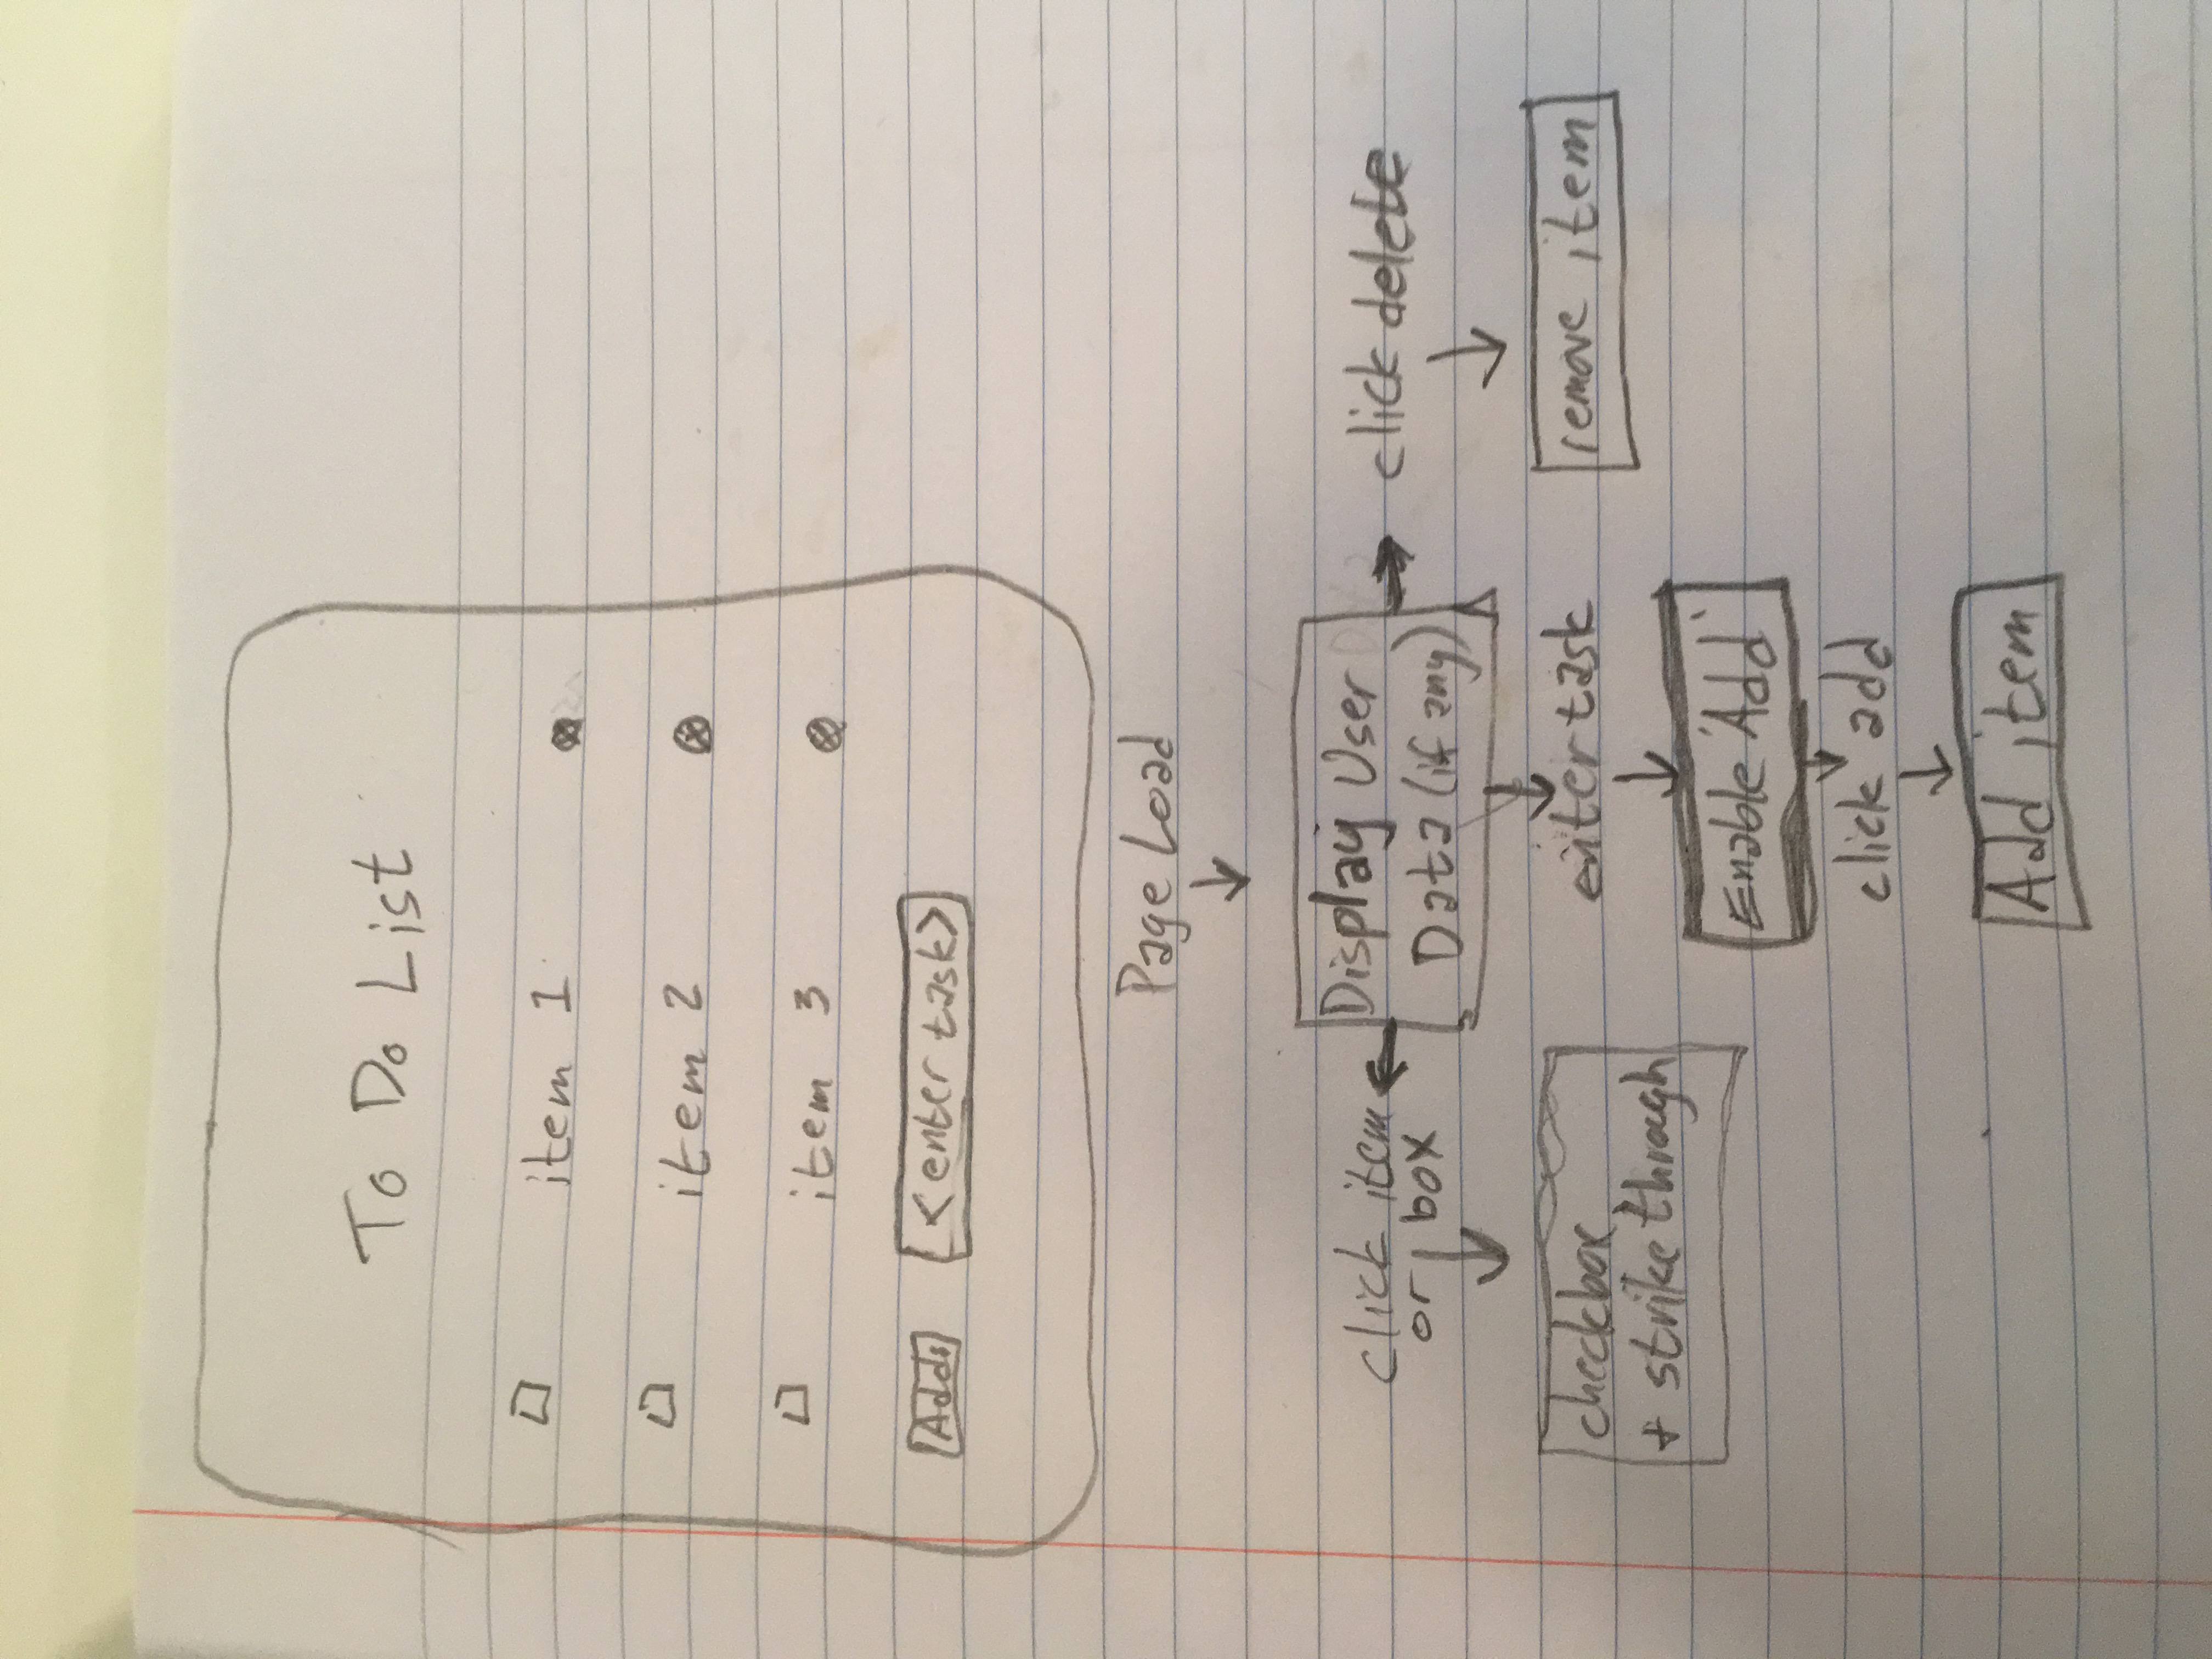 To Do List
item 1
item 2
item 3
Add
<enter task>
Page Load
Display User
Data (if any)
click item
or box
checkbox
+ strikethrough
enter task
Enable 'Add'
click add
Add item
click delete
remove item